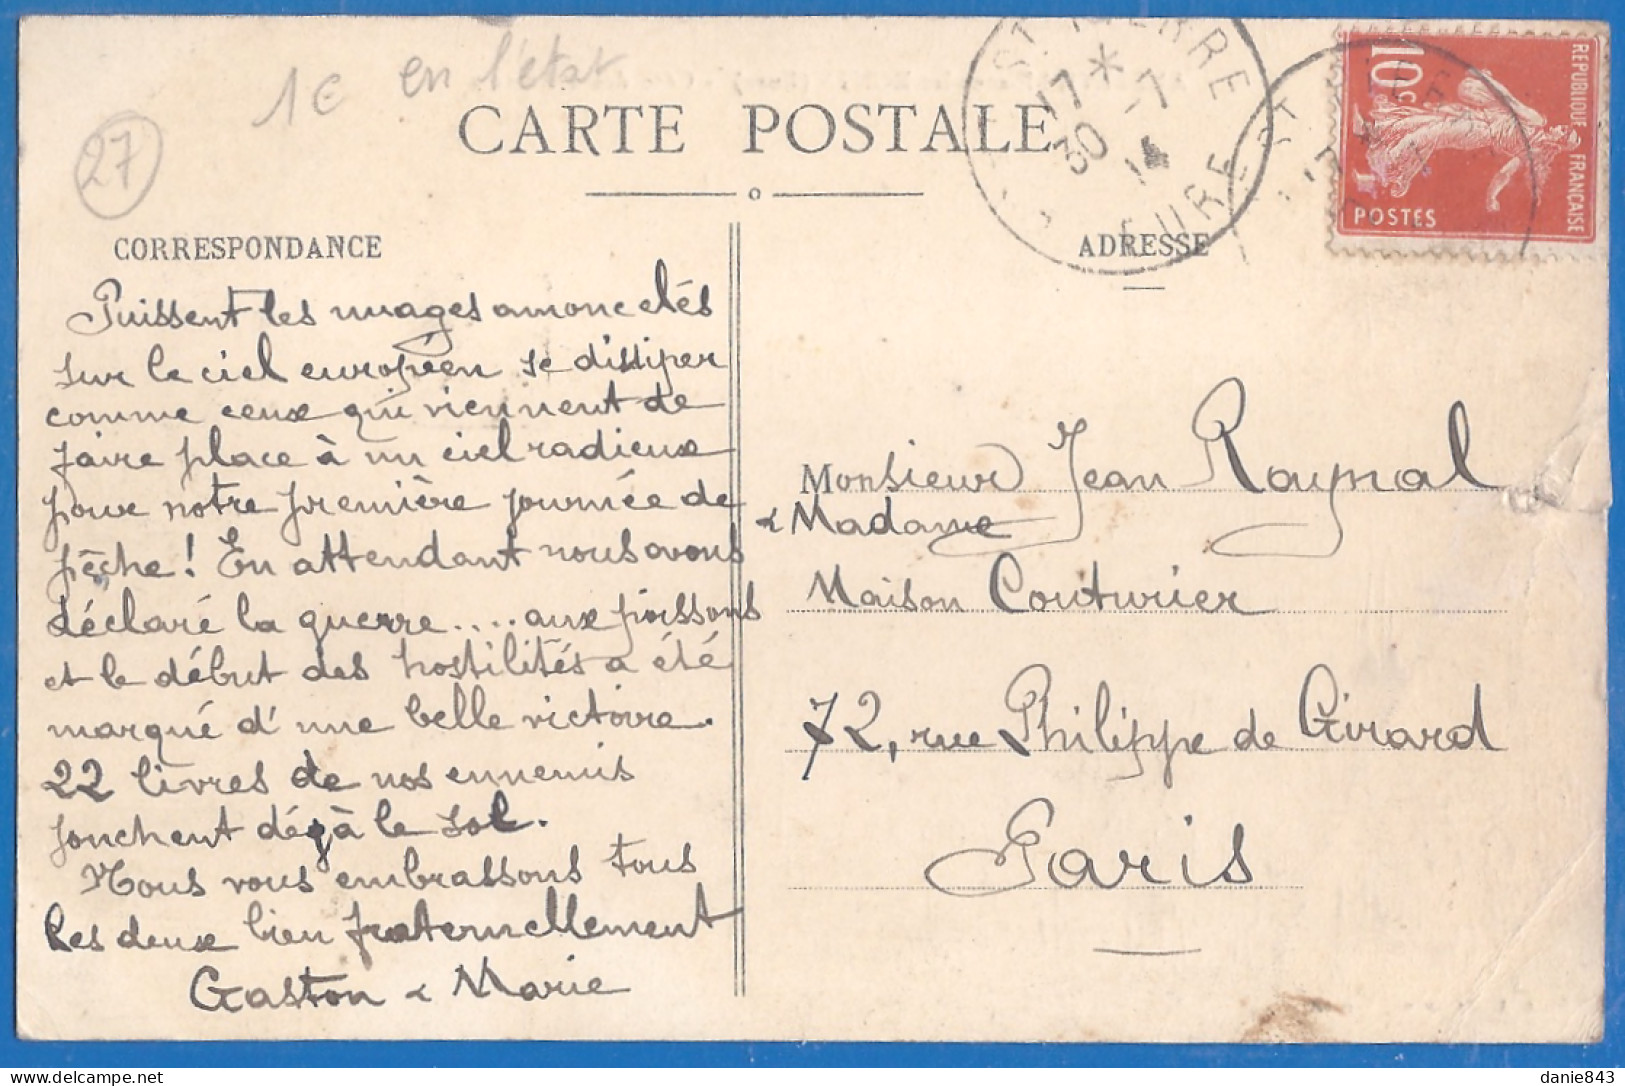 1€ en l'état
27
CARTE POSTALE
ST PIERRE
17 * 30 -7 14
EURE
REPUBLIQUE FRANÇAISE
10c
POSTES
CORRESPONDANCE
Puissent les nuages amoncelés
sur le ciel européen se dissiper
comme ceux qui viennent de
faire place à un ciel radieux
pour notre première journée de
pêche! En attendant nous avons
déclaré la guerre.... aux poissons
et le début des hostilités a été
marqué d'une belle victoire.
22 livres de nos ennemis
jonchent déjà le sol.
Nous vous embrassons tous
les deux bien fraternellement
Gaston & Marie
ADRESSE
Monsieur Jean Raynal
& Madame
Maison Couturier
72, rue Philippe de Girard
Paris
danie843